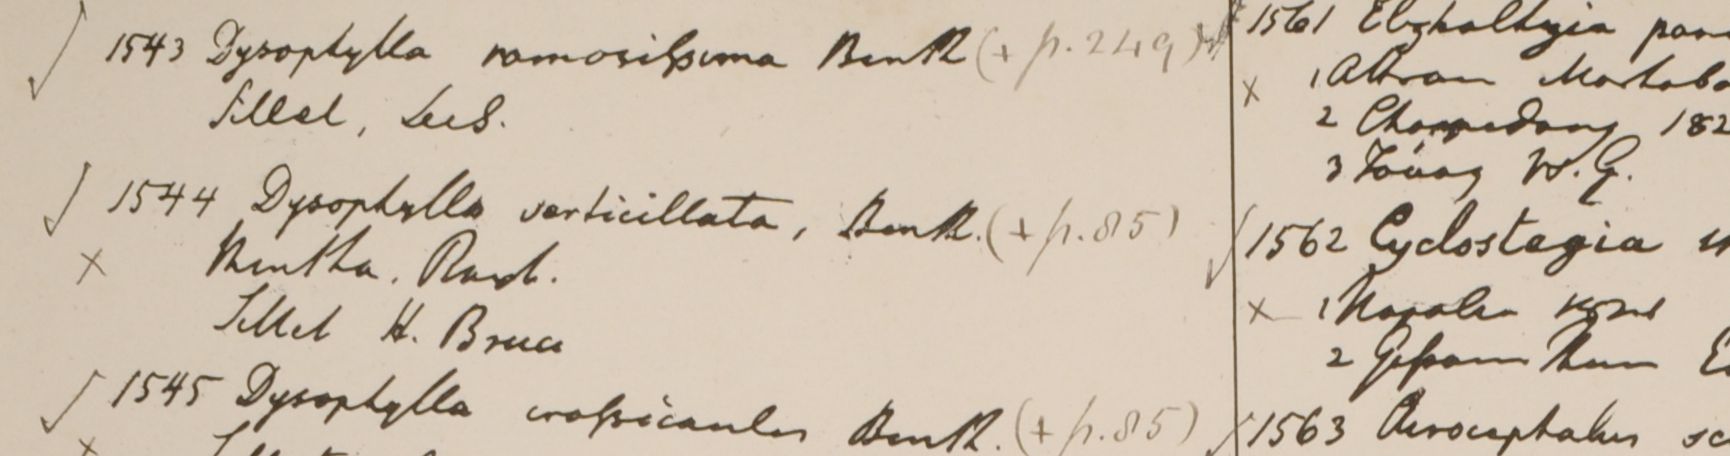 1543 Dysophylla ramosissima Benth (+ p. 249)
Sillet,
1544 Dysophylla verticillata, Benth. (+ p. 85)
Mentha. Roxb.
Sillet H. Bruce
1545 Dysophylla crassicaulis Benth. (+ p. 85)
1561 Elsholtzia
1 Attran
2 Chappedong 182
3 Tavoy W. G.
1562 Cyclostegia
1 Napalia
2 Gossam Than
1563 Acrocephalus sc